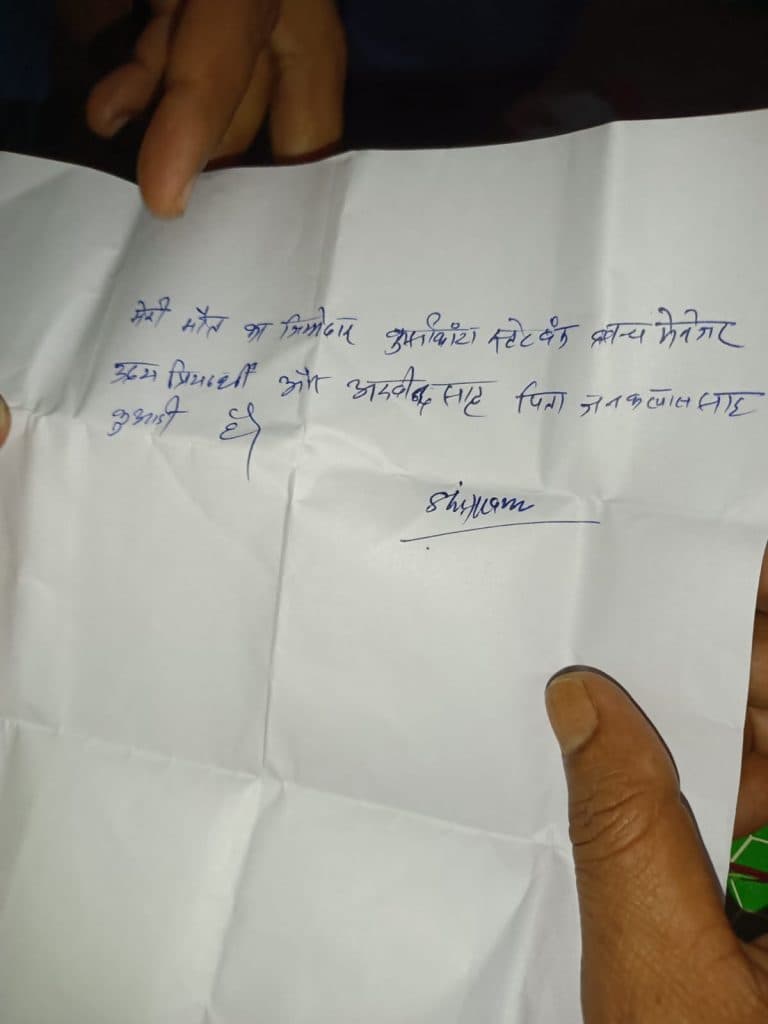 मेरी मौत का जिम्मेदार स्टेट बैंक ब्रान्च मैनेजर
प्रियदर्शी और अरवीन्द साह पिता जनकलाल साह
कुआडी है।
Shivam